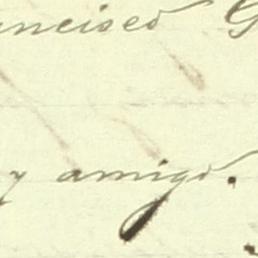 ancisco G
y amigo.